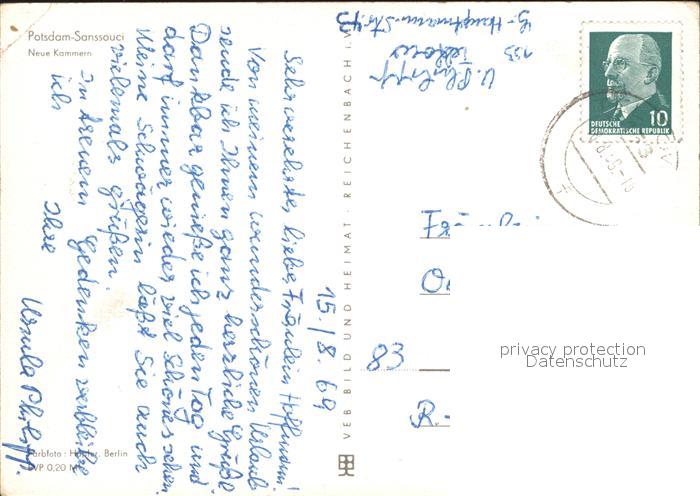 Potsdam-Sanssouci
Neue Kammern
15./8. 69
Sehr verehrtes, liebes Fräulein Hoffmann!
Von meinem wunderschönen Urlaub
sende ich Ihnen ganz herzliche Grüße
Dankbar genieße ich jeden Tag und
darf immer wieder viel Schönes sehen.
Meine Schwägerin läßt Sie auch
vielmals grüßen.
In treuem Gedenken verbleibe
ich
Ihre
Ursula Philipp.
Farbfoto: Berlin
0,20 M
VEB BILD UND HEIMAT · REICHENBACH I.V.
U. Philipp
153 Teltow
G.-Hauptmann-Str. 43
DEUTSCHE
DEMOKRATISCHE REPUBLIK
10
83
R.
privacy protection
Datenschutz